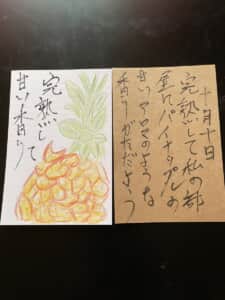 十月十日
完熟して私の部
屋にパイナップルの
甘いアロマのような
香りがただよう
完熟して
甘い香り